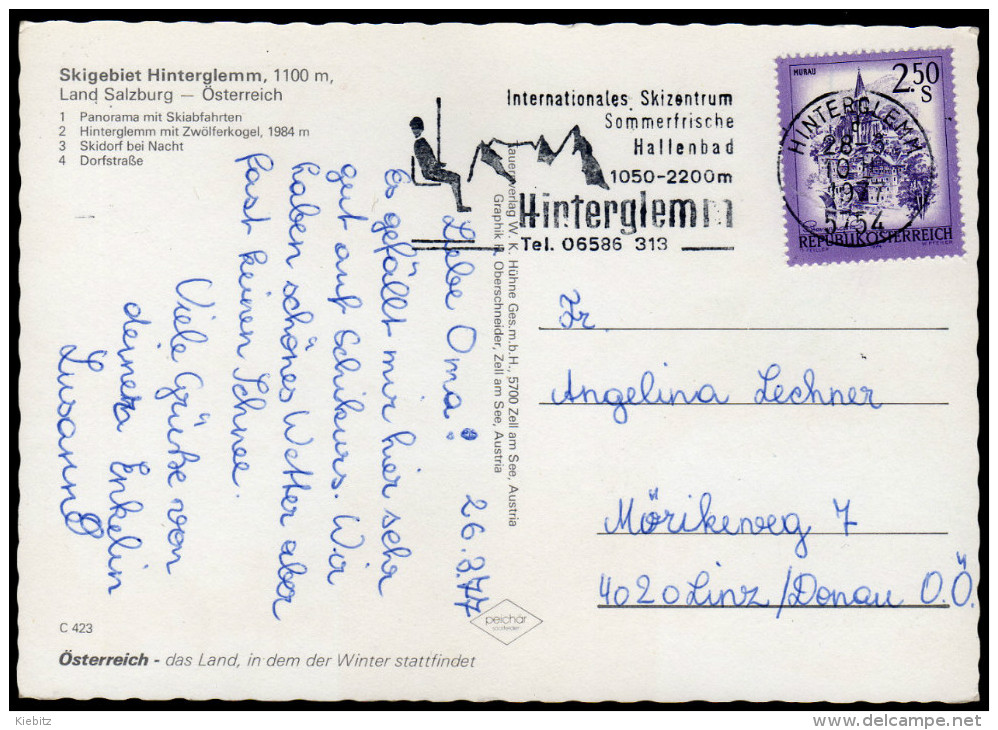 Skigebiet Hinterglemm, 1100 m,
Land Salzburg — Österreich
1 Panorama mit Skiabfahrten
2 Hinterglemm mit Zwölferkogel, 1984 m
3 Skidorf bei Nacht
4 Dorfstraße
Internationales Skizentrum
Sommerfrische
Hallenbad
1050-2200m
Hinterglemm
Tel. 06586 313
MURAU
2.50
S
REPUBLIK ÖSTERREICH
HINTERGLEMM
1977
5754
26.3.77
Liebe Oma!
Es gefällt mir hier sehr
gut auf Schikurs. Wir
haben schönes Wetter aber
fast keinen Schnee.
Viele Grüße von
deiner Enkelin
Susanne
verlag W. K. Hühne Ges.m.b.H., 5700 Zell am See, Austria
Graphik H. Oberschneider, Zell am See, Austria
Fr.
Angelina Lechner
Mörikeweg 7
4020 Linz/Donau O.Ö.
peichär
C 423
Österreich - das Land, in dem der Winter stattfindet
Kiebitz
delcampe.net